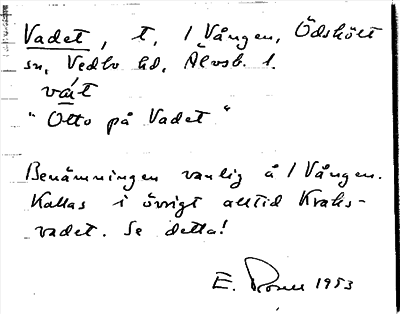 Vadet, t, 1 Vången, Ödskölt
sn, Vedbo hd, Älvsb. l.
vát
"Otto på Vadet"
Benämningen vanlig å 1 Vången.
Kallas i övrigt alltid Kraks-
vadet. Se detta!
E. 1953